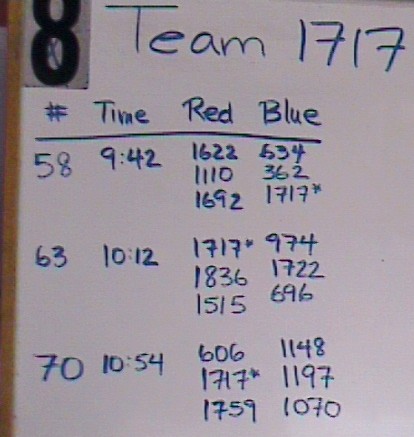 8
Team 1717
# Time Red Blue
58 9:42 1622 634
1110 362
1692 1717*
63 10:12 1717* 974
1836 1722
1515 696
70 10:54 606 1148
1717* 1197
1759 1070